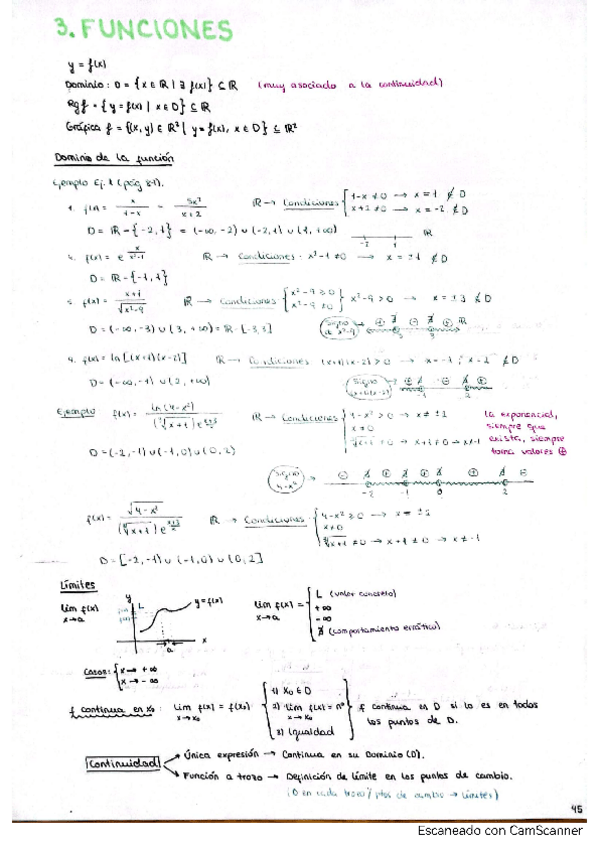 3. FUNCIONES
y = f(x)
Dominio: D = {x ∈ ℝ | ∃ f(x)} ⊆ ℝ (muy asociado a la continuidad)
Rg f = {y = f(x) | x ∈ D} ⊆ ℝ
Gráfica f = {(x, y) ∈ ℝ² | y = f(x), x ∈ D} ⊆ ℝ²
Dominio de la función
Ejemplo Ej. 1 (pág 81).
1. f(x) = x/(1-x) - 5x³/(x+2) ℝ → Condiciones { 1-x ≠ 0 → x = 1 ∉ D
x+2 ≠ 0 → x = -2 ∉ D
D = ℝ - {-2, 1} = (-∞, -2) ∪ (-2, 1) ∪ (1, +∞)
-2 1 ℝ
f(x) = e^(x/(x²-1)) ℝ → Condiciones: x²-1 ≠ 0 → x = ±1 ∉ D
D = ℝ - {-1, 1}
f(x) = (x+1)/√(x²-9) ℝ → Condiciones { x²-9 ≥ 0
x²-9 ≠ 0 } x²-9 > 0 → x = ±3 ∉ D
D = (-∞, -3) ∪ (3, +∞) = ℝ - [-3, 3]
Signo de x²-9
f(x) = ln[(x+1)(x-2)] ℝ → Condiciones (x+1)(x-2) > 0 → x = -1
D = (-∞, -1) ∪ (2, +∞)
Signo (x+1)(x-2)
Ejemplo f(x) = ln(4-x²) ℝ → Condiciones
x ≠ 0
la exponencial,
siempre que
exista, siempre
toma valores ⊕
D = (-2, -1) ∪ (-1, 0) ∪ (0, 2)
Signo 4-x²
-2 -1 0 2
f(x) = √(4-x²) ℝ → Condiciones { 4-x² ≥ 0 → x = ±2
x ≠ 0
≠ 0 → x+1 ≠ 0 → x ≠ -1
D = [-2, -1) ∪ (-1, 0) ∪ (0, 2]
Límites
lim f(x)
x→a
y L y = f(x) a x
lim f(x) = { L (valor concreto)
x→a
+∞
-∞
∄ (comportamiento errático)
Casos: { x → +∞
x → -∞
f continua en x₀: lim f(x) = f(x₀)
x→x₀
1) x₀ ∈ D
2) lim f(x) = nº
x→x₀
3) Igualdad
f continua en D si lo es en todos
los puntos de D.
Continuidad
Única expresión → Continua en su Dominio (D).
Función a trozo → Definición de límite en los puntos de cambio.
(D en cada trozo / ptos de cambio → límites)
45
Escaneado con CamScanner